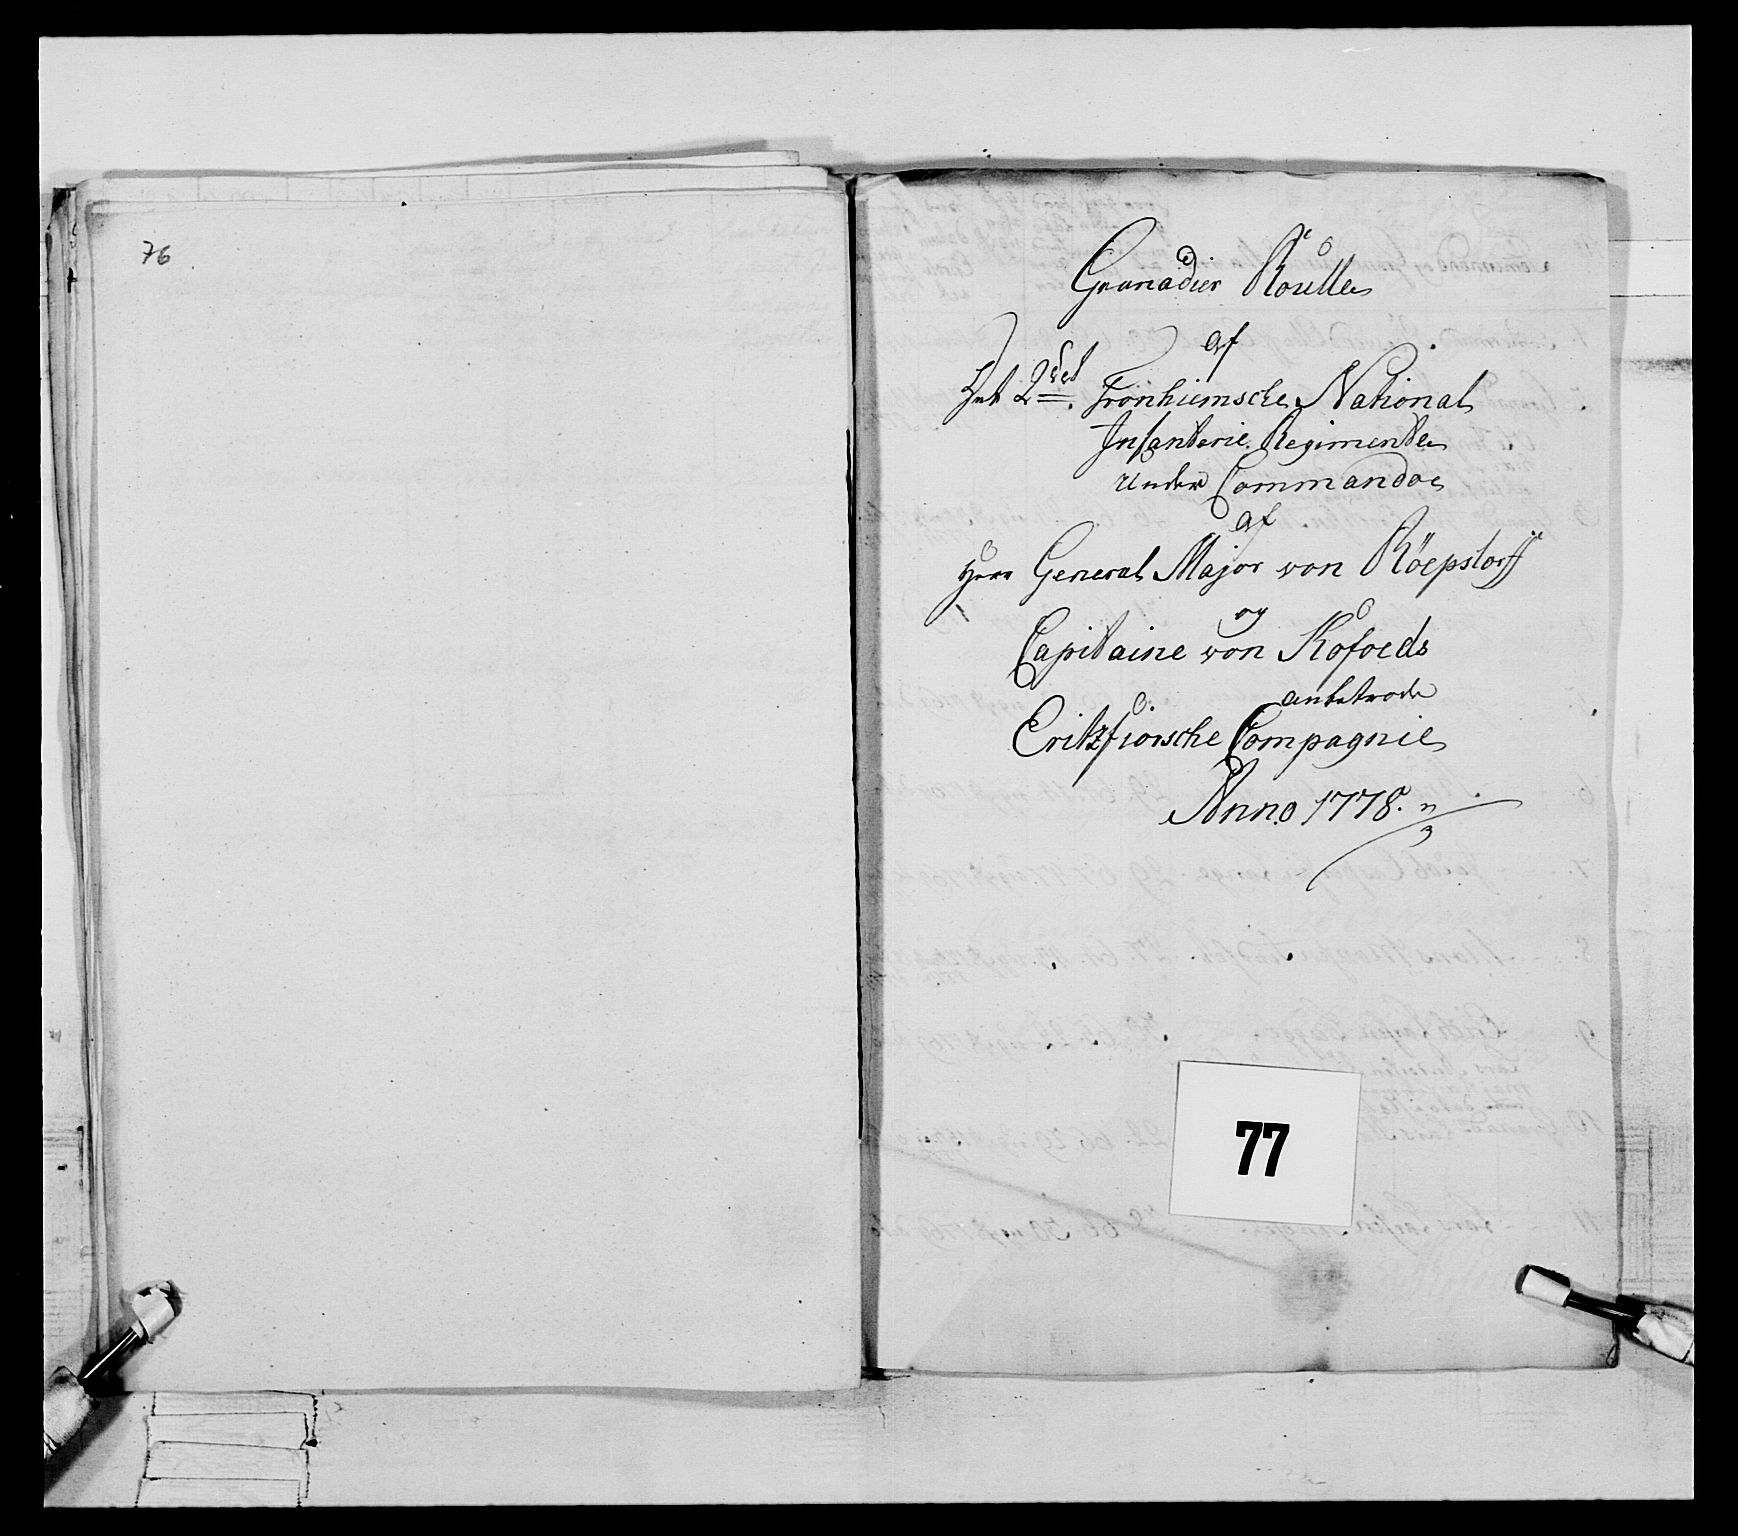 76
Granadier Roulle
af
Det 2det Tronhiemsche National
Infanterie Regimente
under Commandoe
af
Herr General Major von Röepstorff
og
Capitaine von Kofoeds
anbetroede
Eritzfiorsche Compagnie
Anno 1778.
77